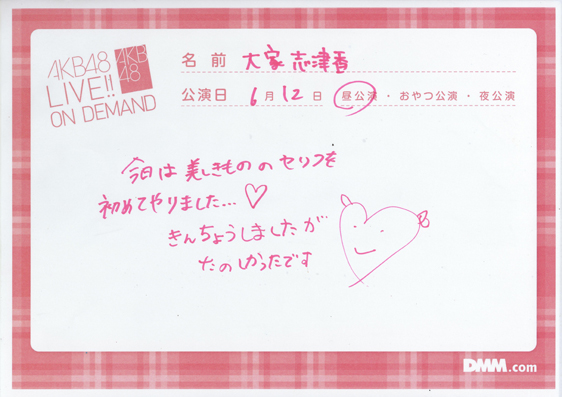 AKB48
LIVE!!
ON DEMAND
AKB
48
名前 大家志津香
公演日 6月12日 昼公演・おやつ公演・夜公演
今日は美しきもののセリフを
初めてやりました…♡
きんちょうしましたが
たのしかったです
DMM.com